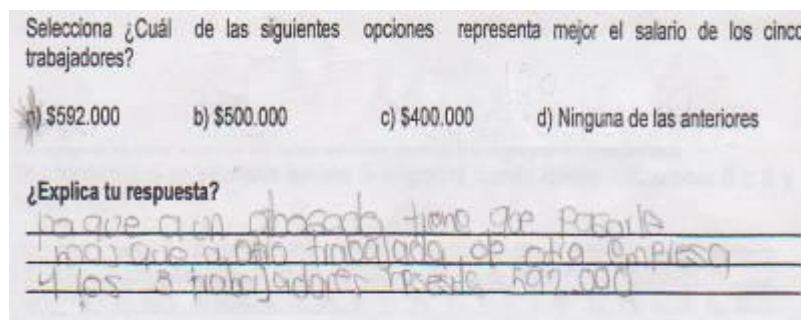 Selecciona ¿Cuál de las siguientes opciones representa mejor el salario de los cinco
trabajadores?
a) $592.000 b) $500.000 c) $400.000 d) Ninguna de las anteriores
¿Explica tu respuesta?
que a un abogado tiene que pagarle
mas que a otro trabajada de otra empresa
los trabajadores 592.000